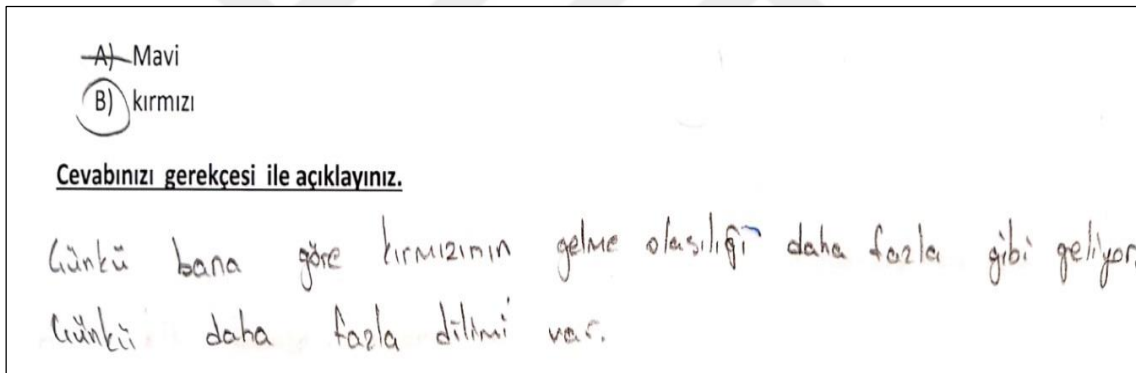 A) Mavi
B) kırmızı
Cevabınızı gerekçesi ile açıklayınız.
Çünkü bana göre kırmızının gelme olasılığı daha fazla gibi geliyor.
Çünkü daha fazla dilimi var.